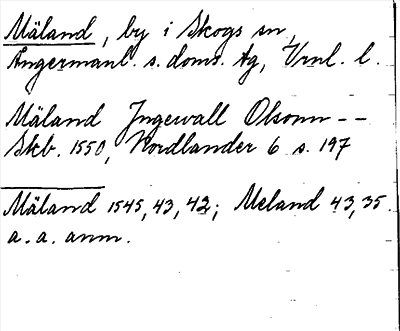 Mäland, by i Skogs sn,
Ångermanl. s. doms. tg, Vrnl. l.
Mäland Ingewall Olsonn --
Skb. 1550, Nordlander 6 s. 197
Mäland 1545, 43, 42; Meland 43, 35
a. a. anm.